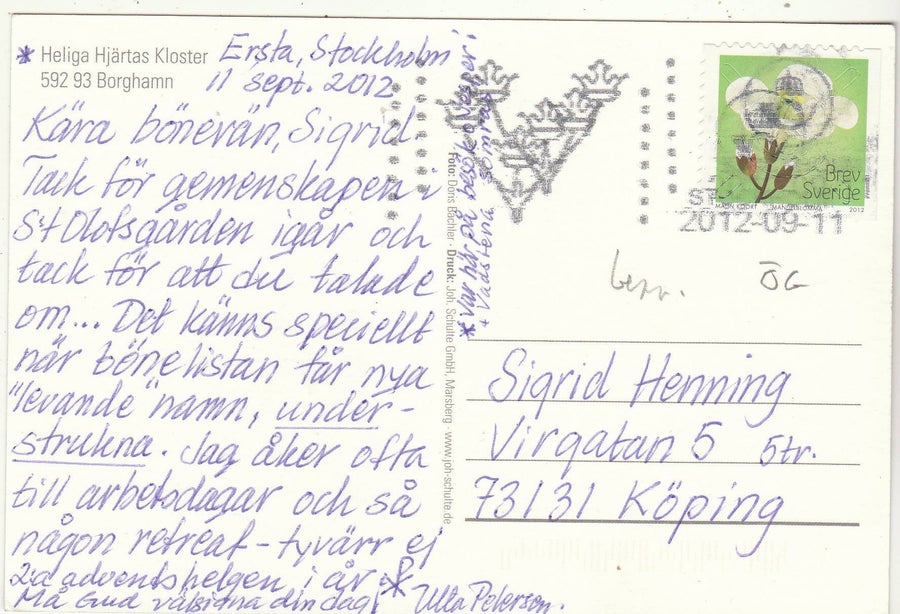 * Heliga Hjärtas Kloster
592 93 Borghamn
Ersta, Stockholm
11 sept. 2012
Kära bönevän, Sigrid.
Tack för gemenskapen i
S:t Olofsgården igår och
tack för att du talade
om... Det känns speciellt
när bönelistan får nya
"levande" namn, under-
strukna. Jag åker ofta
till arbetsdagar och så
någon retreat - tyvärr ej
2:a adventshelgen i år.
Må Gud välsigna din dag!
Ulla Peterson.
* var här på besök o vesper i
+ Vadstena
Foto: Doris Büchler · Druck: Joh. Schulte GmbH, Marsberg · www.joh-schulte.de
Brev
Sverige
2012
2012-09-11
ÖG
Sigrid Henning
Virgatan 5 5tr.
731 31 Köping